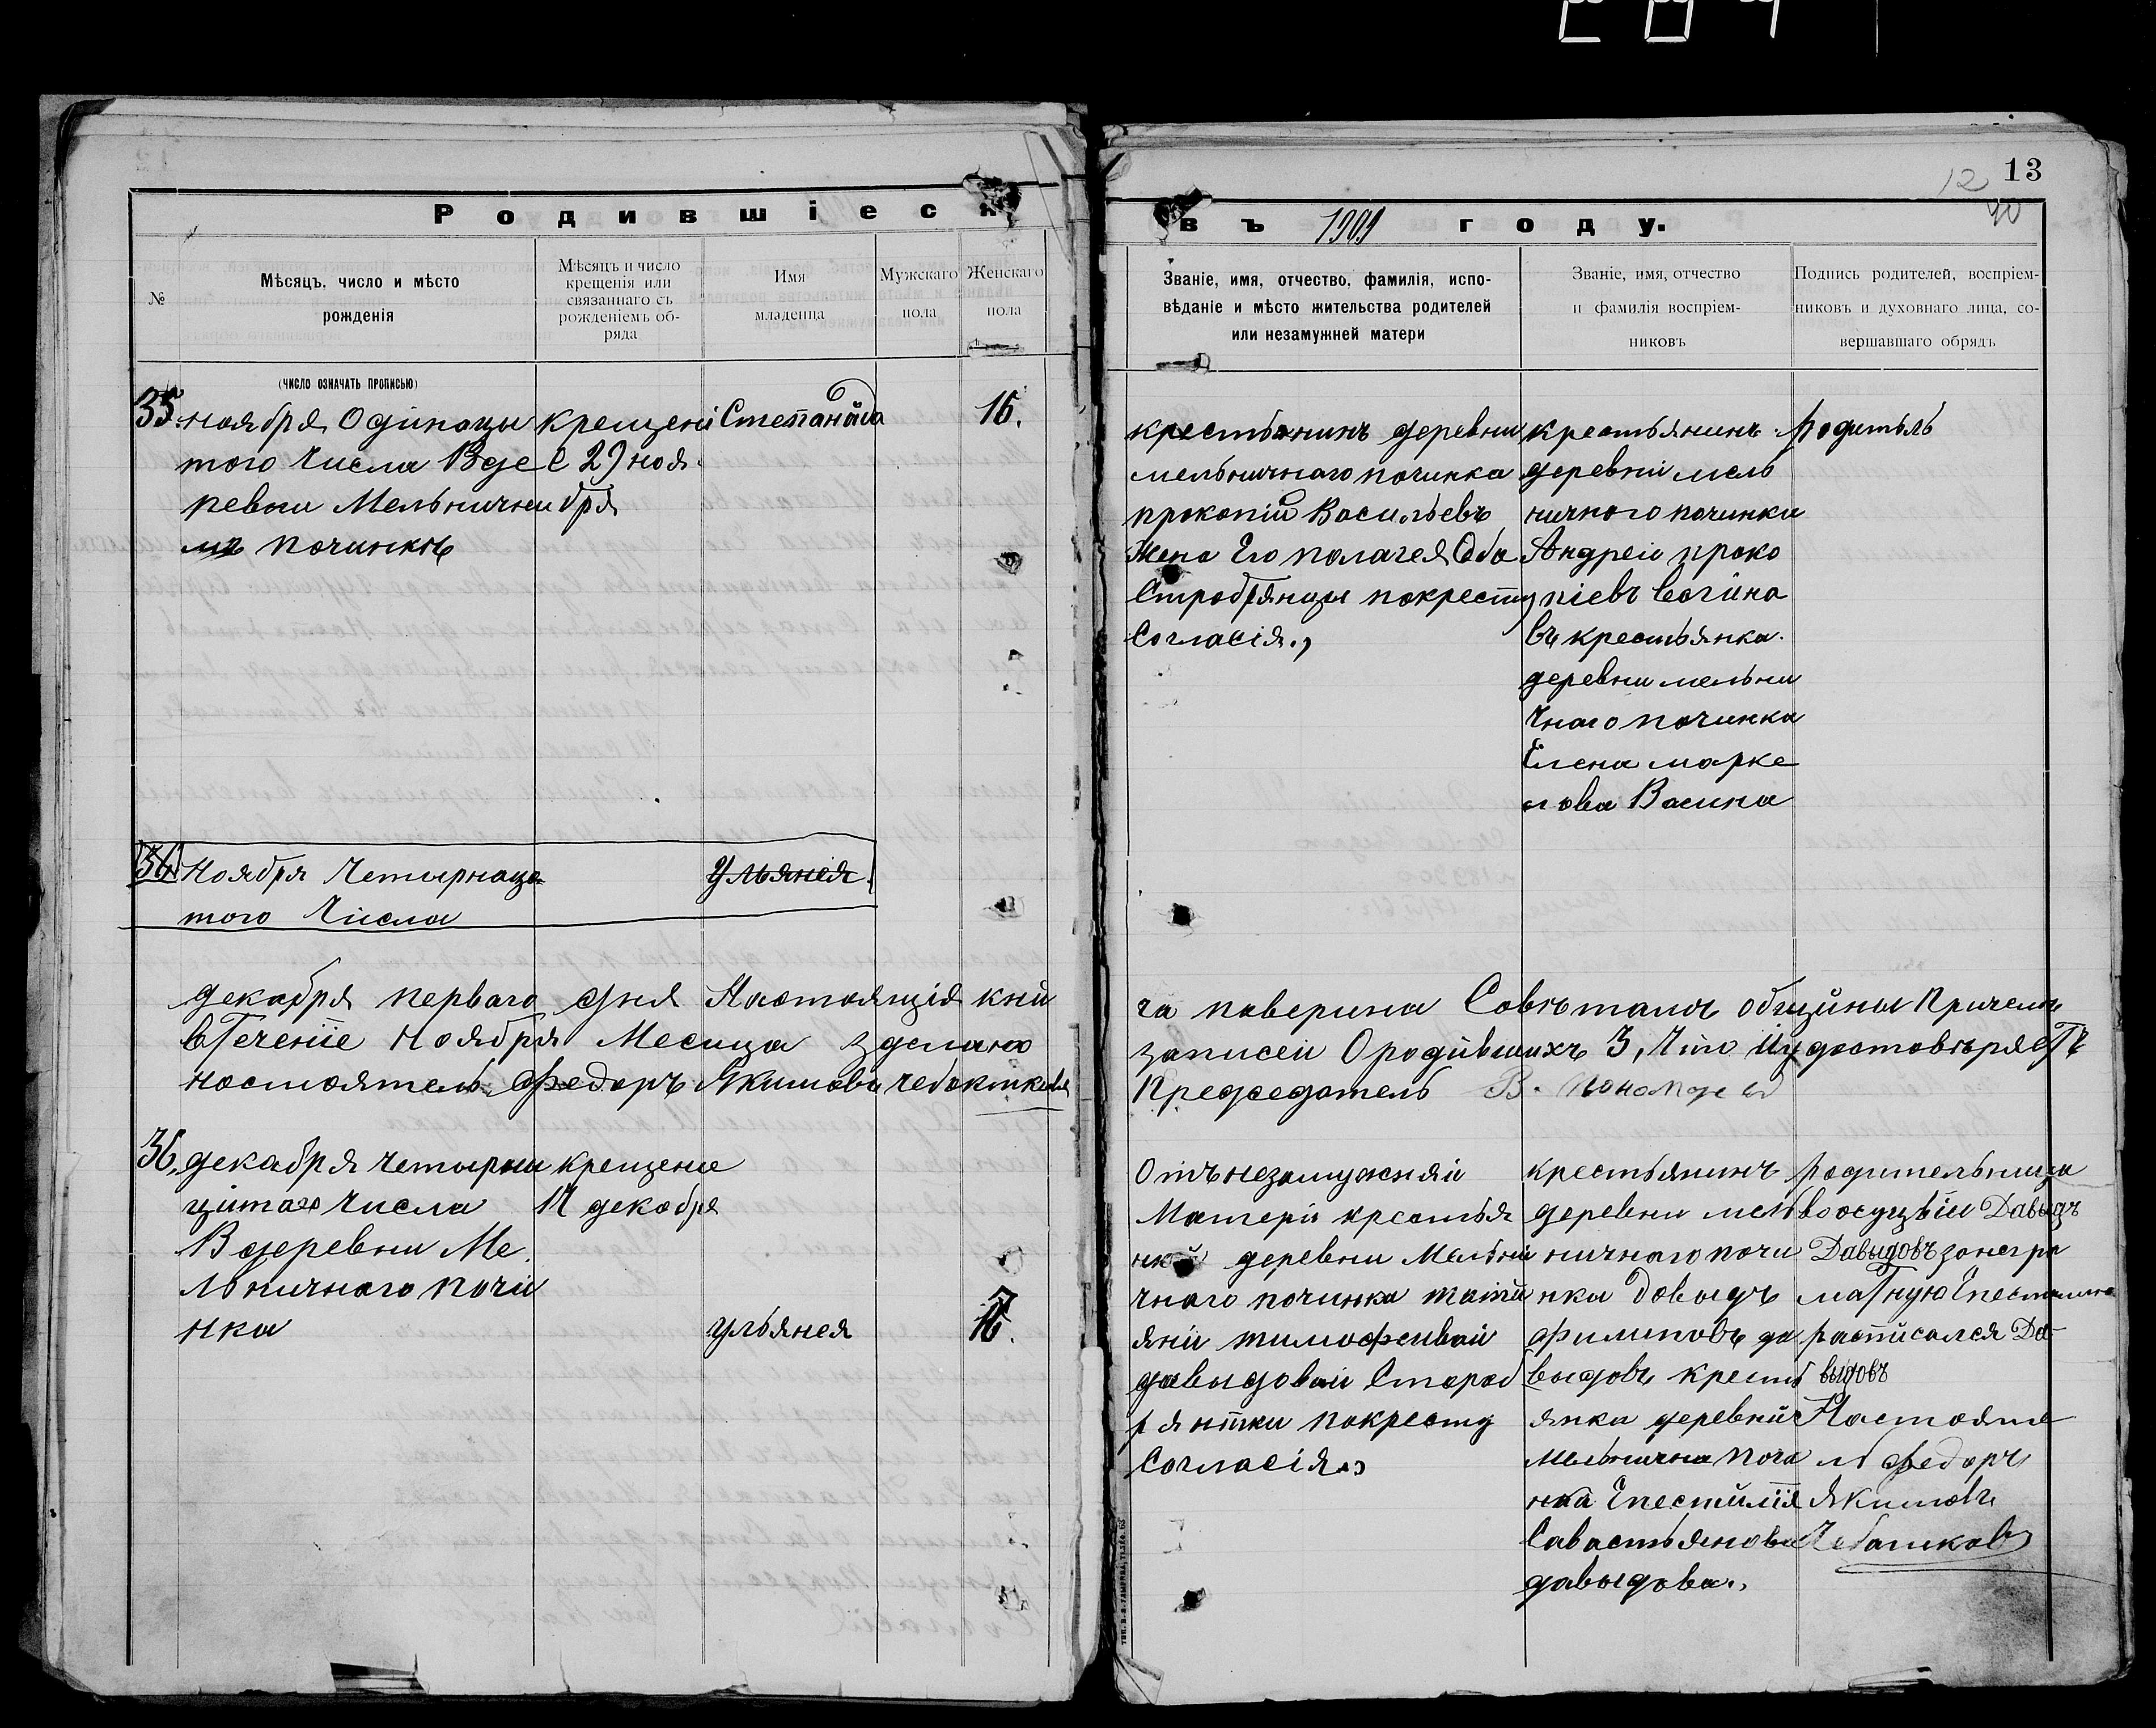 13
12
40
Родившіеся
въ 1909 году.
№
Мѣсяцъ, число и мѣсто
рожденія
Мѣсяцъ и число
крещенія или
связаннаго съ
рожденіемъ об-
ряда
Имя
младенца
Мужскаго
пола
Женскаго
пола
Званіе, имя, отчество, фамилія, испо-
вѣданіе и мѣсто жительства родителей
или незамужней матери
Званіе, имя, отчество
и фамилія воспріем-
никовъ
Подпись родителей, воспріем-
никовъ и духовнаго лица, со-
вершавшаго обрядъ
(число означать прописью)
35
ноября Одинацы
того Числа Вде
ревни Мельнични
мъ починкѣ
крещені
е 29 ноя
бря
Степанида
16.
крестьянинъ деревни
мельничнаго починка
прокопій Васильевъ
Жена Его полагея Оба
Старобрянцы покресту
Согласія.,
крестьянинъ
деревни мель
ничного починки
Андреи проко
піевъ Васина
въ крестьянка
деревни мельни
Чнаго починка
Елена марке
лова Васина
Родитьль
36
Ноября Четырнаца
того Числа
Ульянея
декабря перваго дня Настоящія кни
га поверина Совѣтамъ общины Причемъ
вТеченіе Ноября Месяца зделано
записеи Ородившихъ 3, Что И удостовѣряетъ
ностоятель Федоръ Якимовъ чебактковъ
Председатель В. Пономарев
36.
декабря четырна
цітаго Числа
Вдеревни Ме
льничного почи
нка
крещение
17 декобря
ульянея
17.
Отънезамужняи
Матери крестья
нкой деревни Мельни
чнаго починка тати
яни тимофеивой
давыдоваи Староб
рянтки покресту
Согласія.,
крестьянинъ
деревни мель
ничнаго почи
нка Давыдъ
филиповъ да
выдовъ кресть
янка деревни
мельнична почи
нка Епестимія
Савастьянова
давыдова.,
родительница
Давыдъ
Давыдовъ занегра
матную
расписался Да
выдовъ
Настояте
ль федоръ
Якимовъ
Чебатковъ